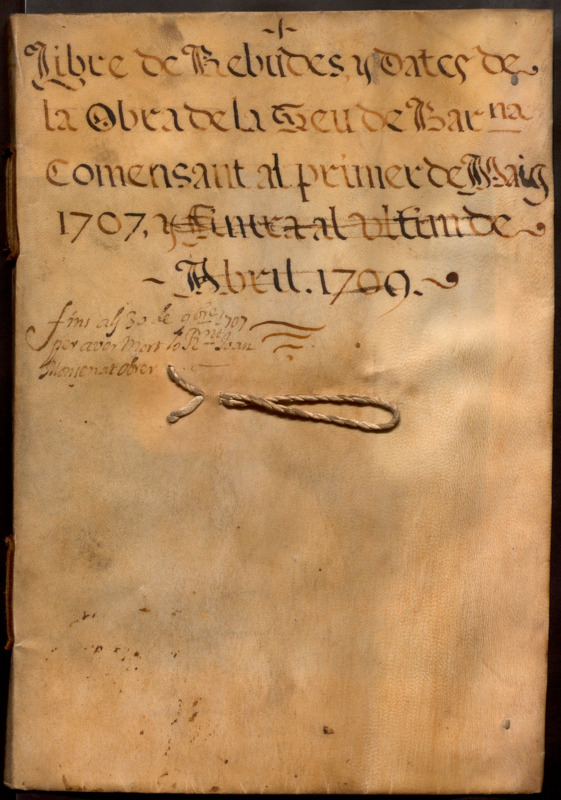 Llibre de Rebudes, y Dates de
la Obra de la Seu de Bar.na
Comensant al primer de Maig
1707, y Finira al ultim de
Abril. 1709.
fins als 30 de 9bre 1707
per aver mort lo Rnt Joan
obrer